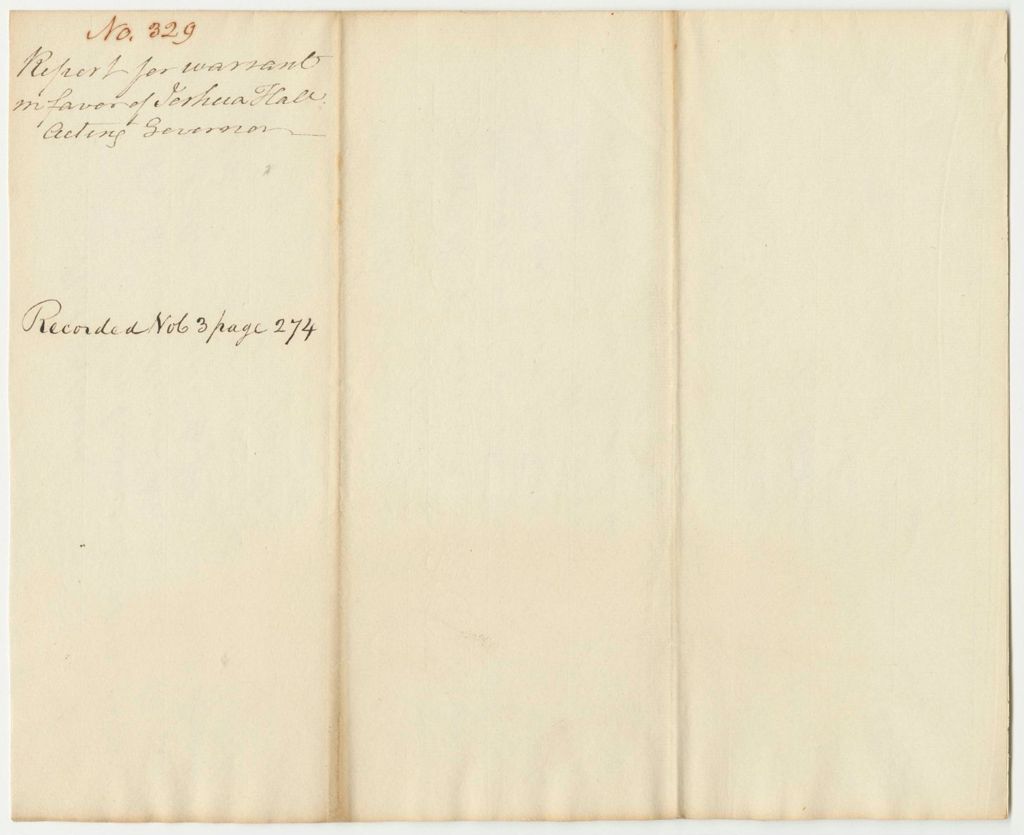 No. 329
Report for warrant
in favor of Joshua Hall
Acting Governor
Recorded Vol 3 page 274